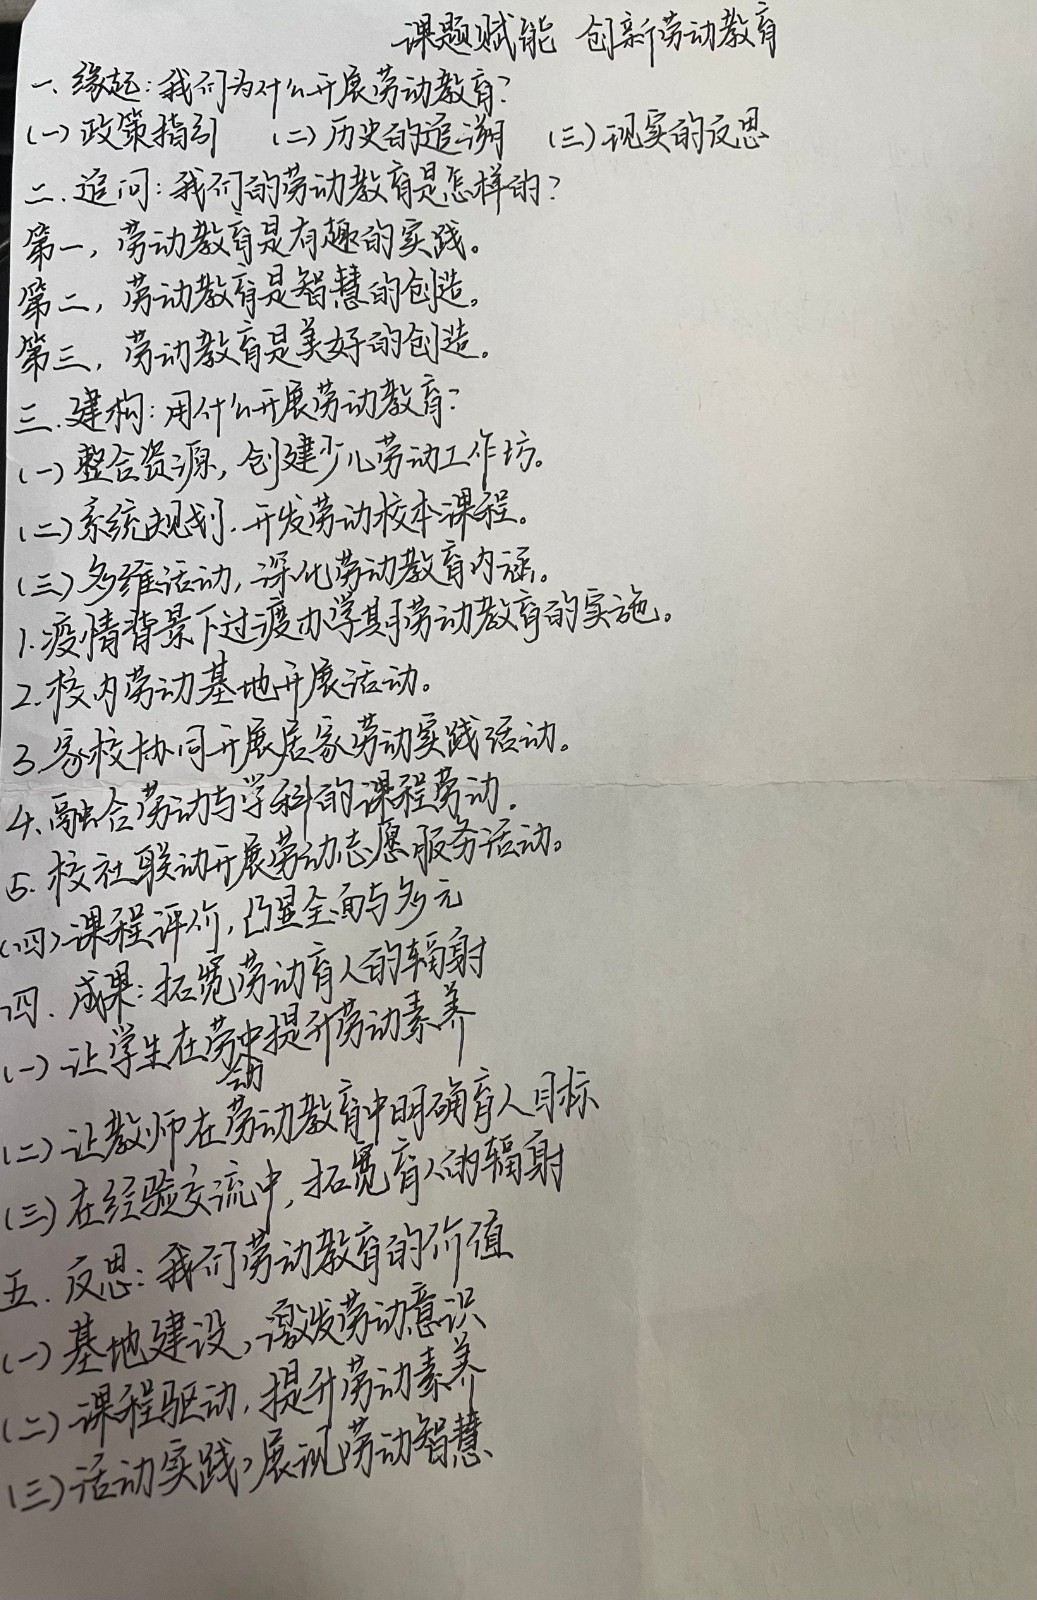 课题赋能 创新劳动教育
一、缘起:我们为什么开展劳动教育?
(一)政策指引 (二)历史的追溯 (三)现实的反思
二.追问:我们的劳动教育是怎样的?
第一,劳动教育是有趣的实践。
第二,劳动教育是智慧的创造。
第三,劳动教育是美好的创造。
三.建构:用什么开展劳动教育?
(一)整合资源,创建少儿劳动工作坊。
(二)系统规划.开发劳动校本课程。
(三)多维活动,深化劳动教育内涵。
1.疫情背景下过渡办学期劳动教育的实施。
2.校内劳动基地开展活动。
3.家校协同开展居家劳动实践活动。
4.融合劳动与学科的课程劳动.
5.校社联动开展劳动志愿服务活动。
(四)课程评价,凸显全面与多元
四.成果:拓宽劳动育人的辐射
(一)让学生在劳动中提升劳动素养
(二)让教师在劳动教育中明确育人目标
(三)在经验交流中,拓宽育人的辐射
五.反思:我们劳动教育的价值
(一)基地建设,激发劳动意识
(二)课程驱动,提升劳动素养
(三)活动实践,展现劳动智慧